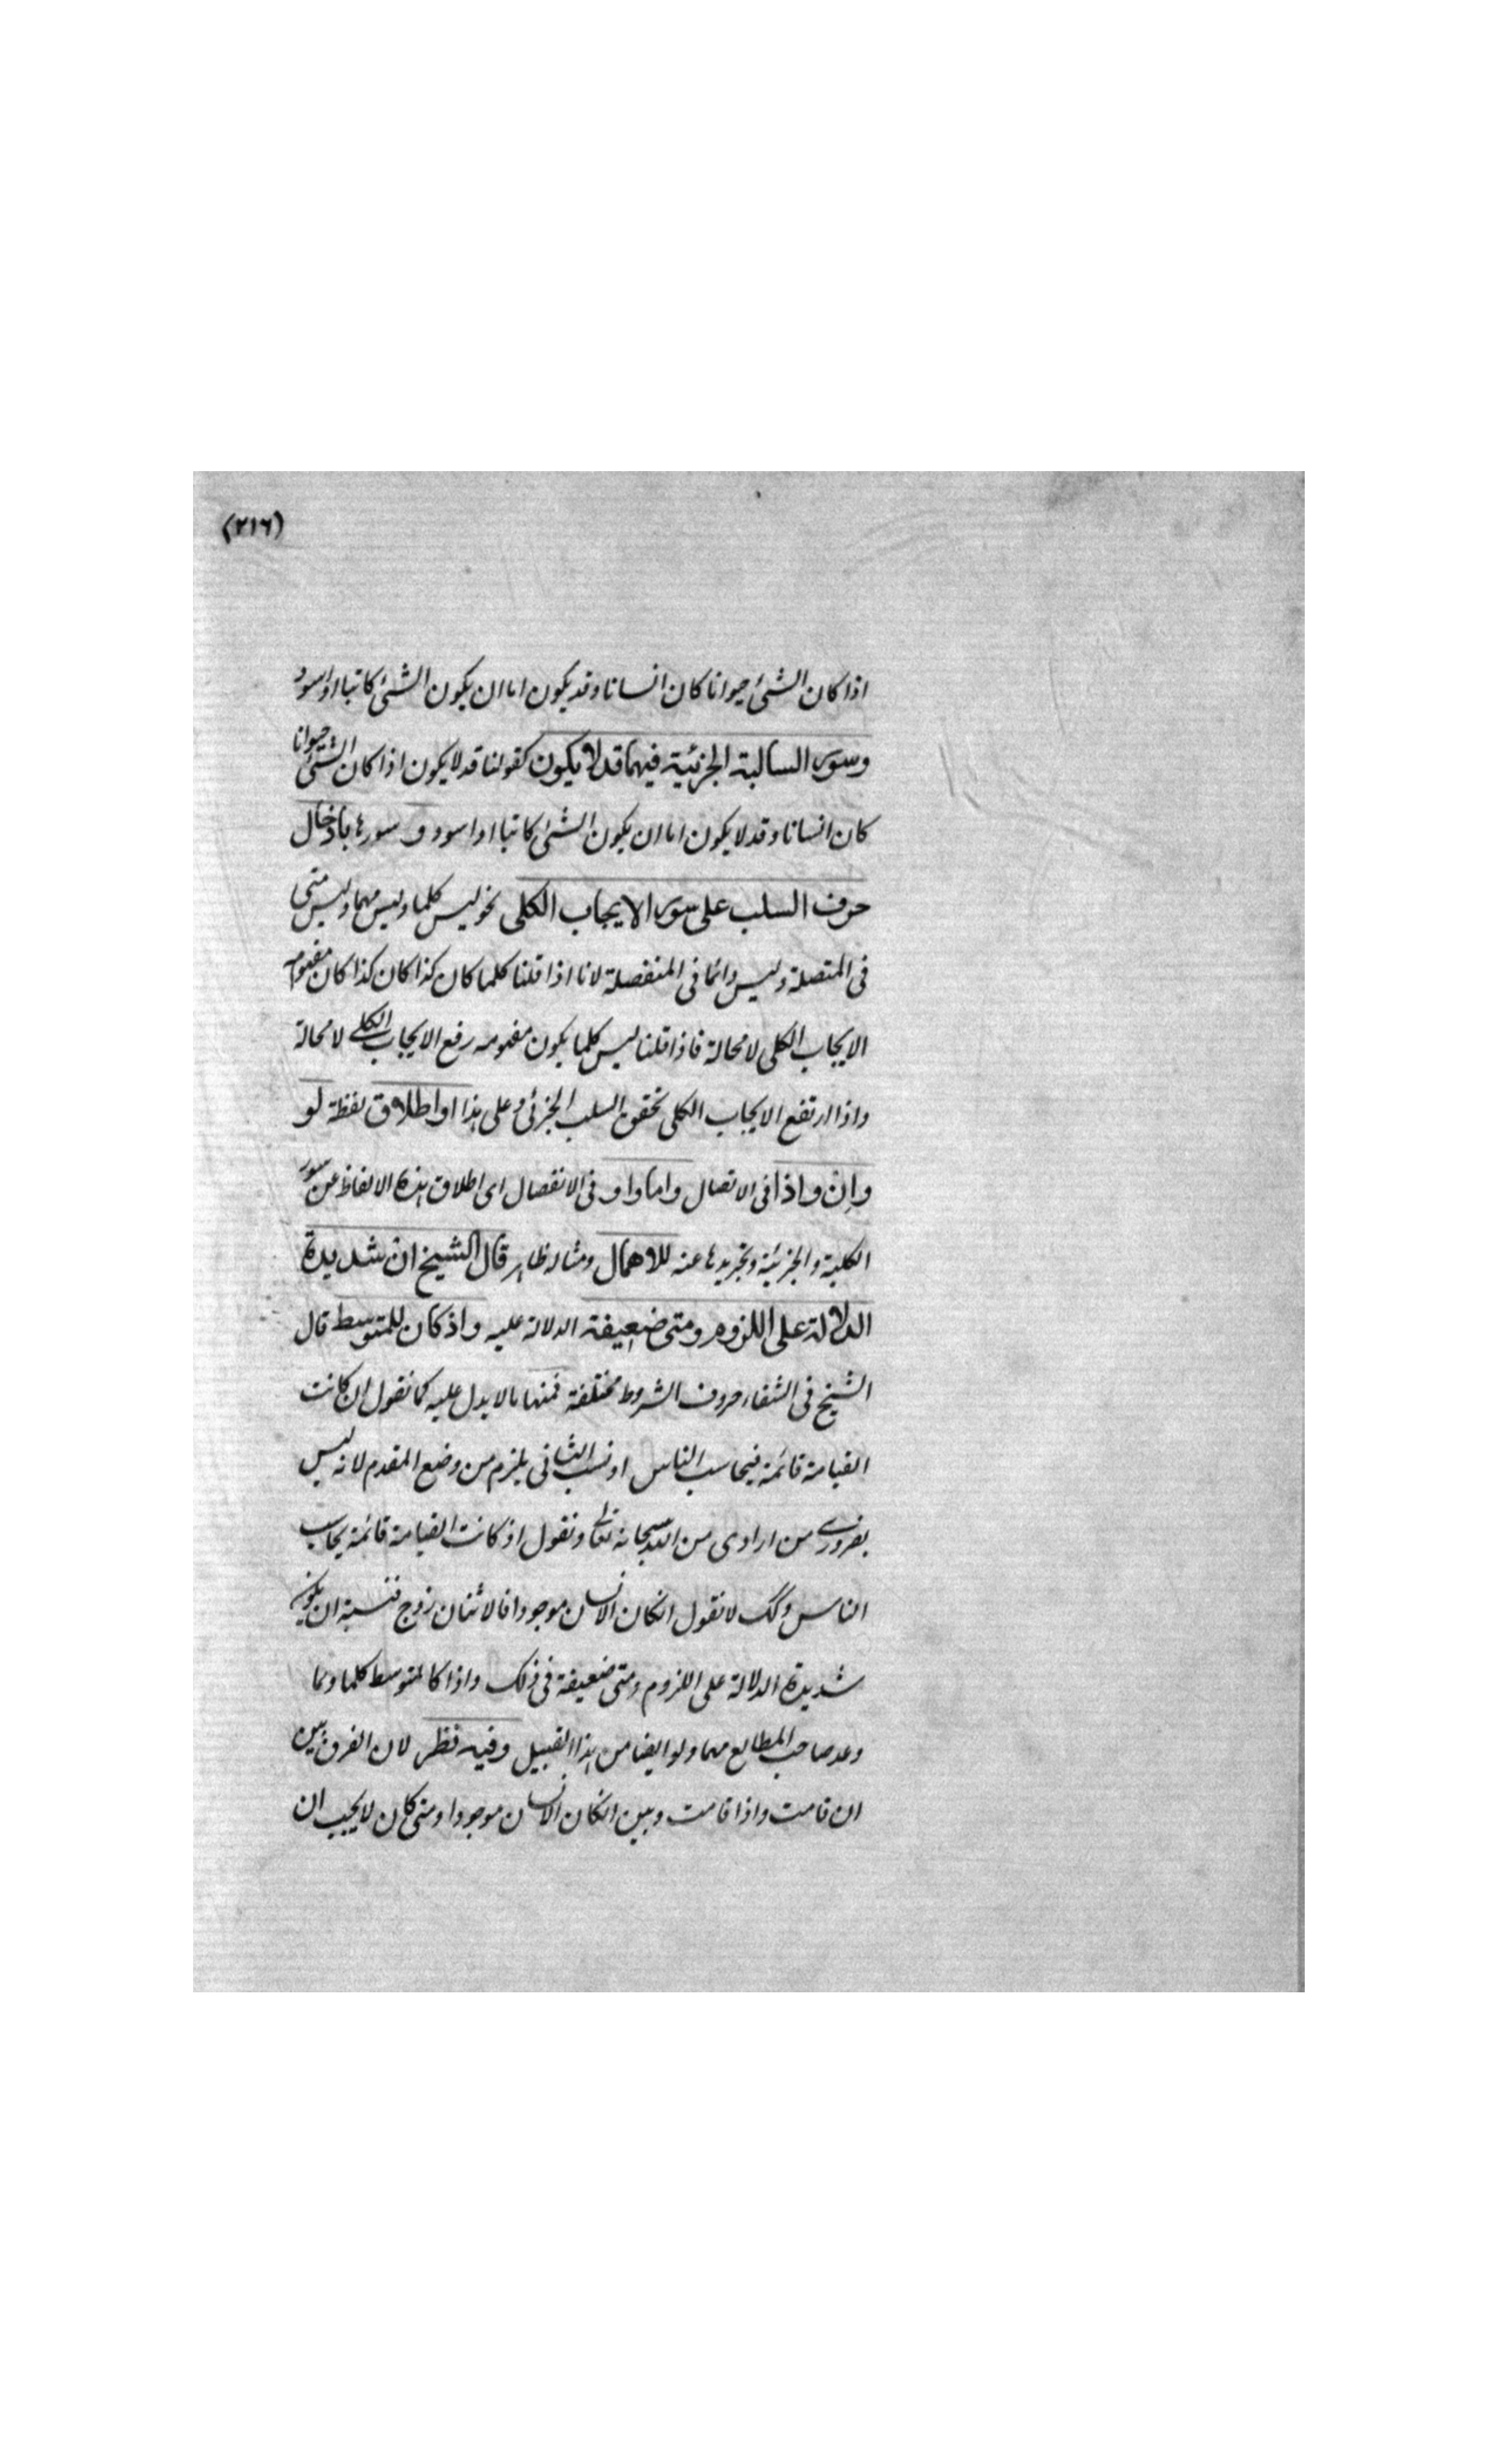 (٢١٦)
اذا كان الشئ حيوانا كان انسانا وقد يكون اما ان يكون الشئ كاتبا او اسود
وسور السالبة الجزئية فيهما قد لا يكون كقولنا قد لا يكون اذا كان الشئ حيوانا
كان انسانا وقد لا يكون اما ان يكون الشئ كاتبا او اسود و سورها بادخال
حرف السلب على سور الايجاب الكلى نحو ليس كلما وليس مهما وليس متى
فى المتصلة وليس دائما فى المنفصلة لانا اذا قلنا كلما كان كذا كان كذا كان مفهومه
الايجاب الكلى لا محالة فاذا قلنا ليس كلما يكون مفهومه رفع الايجاب الكلے لا محالة
واذا ارتفع الايجاب الكلى تحقق السلب الجزئى وعلى هذا او اطلاق لفظة لو
وان واذا فى الاتصال واما واو فى الانفصال اى اطلاق هذه الالفاظ عن سور
الكلية والجزئية وتجريدها عنه للاهمال ومثاله ظاهر قال الشيخ ان شديدة
الدلالة على اللزوم ومتى ضعيفة الدلالة عليه واذ كان للمتوسط قال
الشيخ فى الشفاء حروف الشروط مختلفة فمنها ما لا يدل عليه كما نقول ان كانت
القيامة قائمة فيحاسب الناس اذ نسب الثانى يلزم من وضع المقدم لانه ليس
بضرورے من ارادى من الله سبحانه تعالے ونقول اذ كانت القيامة قائمة يحاسب
الناس وكك لا نقول انكان الانسان موجودا فالاثنان زوج فنسبة ان يكون
شديدة الدلالة على اللزوم ومتى ضعيفة فى ذلك واذا كالمتوسط كلما ولما
وعد صاحب المطالع مهما ولو ايضا من هذا القبيل وفيه نظر لان الفرق بين
ان قامت واذا قامت وبين انكان الانسان موجودا ومتى كان لا يجب ان